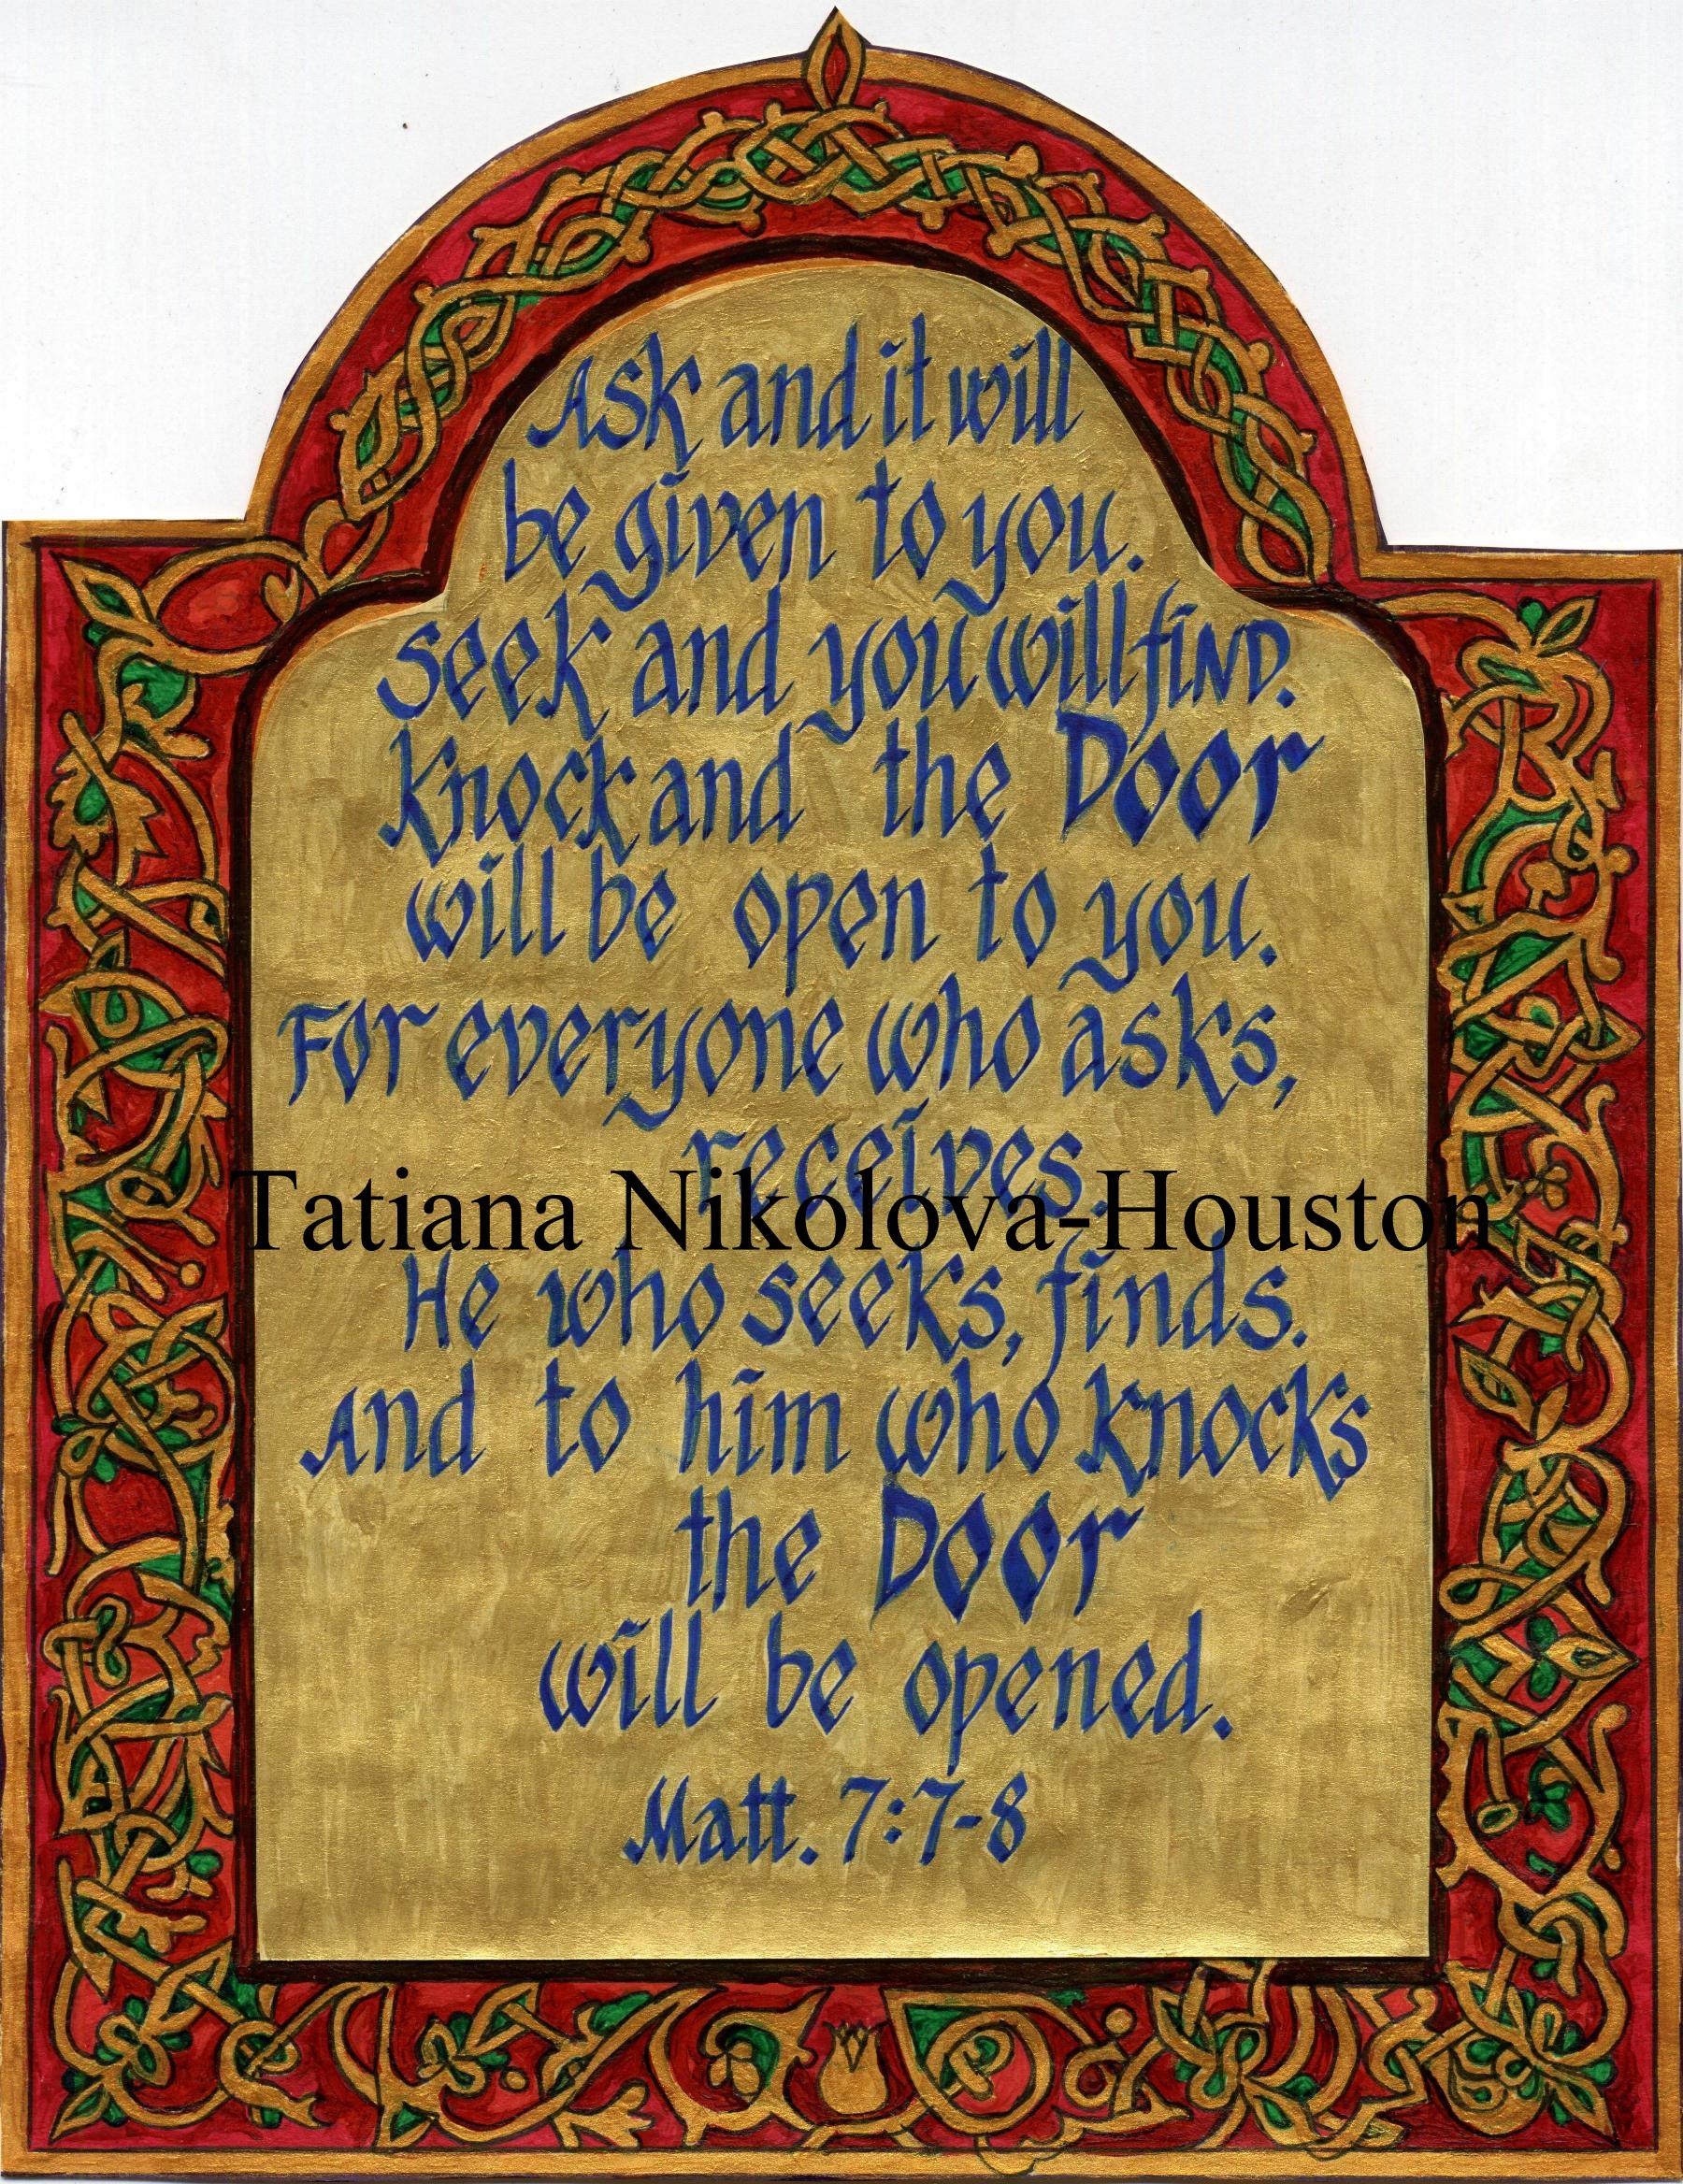 Ask and it will
be given to you.
Seek and you will fIND.
Knock and the Door
will be open to you.
For everyone who asks,
receives.
Tatiana Nikolova-Houston
He who seeks, finds.
And to him who knocks
the Door
will be opened.
Matt. 7:7-8